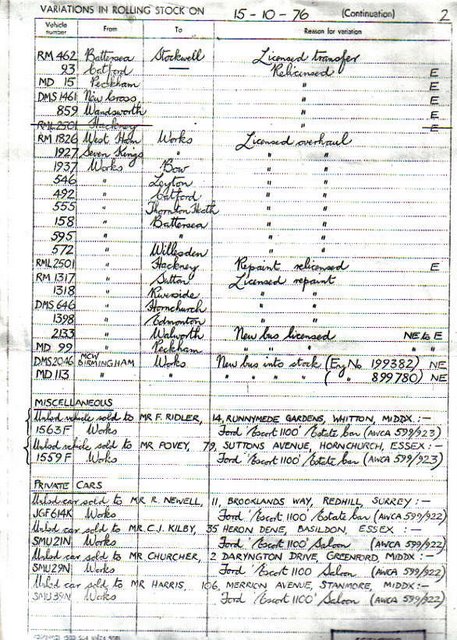 VARIATIONS IN ROLLING STOCK ON 15-10-76 (Continuation) 2
Vehicle number From To Reason for variation
RM 462 Battersea Stockwell Licensed transfer
93 Catford — Relicensed E
MD 15 Peckham " E
DMS 1461 New Cross " E
859 Wandsworth " E
RML 2501 Hackney " E
RM 1826 West Ham Works Licensed overhaul
1927 Seven Kings " "
1937 Works Bow " "
546 " Leyton " "
492 " Catford " "
555 " Thornton Heath " "
158 " Battersea " "
595 " " " "
572 " Willesden " "
RML 2501 " Hackney Repaint relicensed E
RM 1317 " Sutton Licensed repaint
1318 " Riverside " "
DMS 646 " Hornchurch " "
1398 " Edmonton " "
2133 " Walworth New bus licensed NE to E
MD 99 " Peckham " " " "
DMS 2046 MCW BIRMINGHAM Works New bus into stock (Eng No 199382) NE
MD 113 " " " " " " ( " " 899780) NE
MISCELLANEOUS
Unlsd vehicle sold to MR F. RIDLER, 14, RUNNYMEDE GARDENS, WHITTON, MIDDX :—
1563F Works Ford 'Escort 1100' Estate Car (AWCA 599/923)
Unlsd vehicle sold to MR POVEY, 79 SUTTONS AVENUE, HORNCHURCH, ESSEX :—
1559F Works Ford 'Escort 1100' Estate Car (AWCA 599/923)
PRIVATE CARS
Unlsd car sold to MR R. NEWELL, 11, BROOKLANDS WAY, REDHILL, SURREY :—
JGF614K Works Ford 'Escort 1100' Estate Car (AWCA 599/922)
Unlsd car sold to MR C.J. KILBY, 35 HERON DENE, BASILDON, ESSEX :—
SMU21N Works Ford 'Escort 1100' Saloon (AWCA 599/922)
Unlsd car sold to MR CHURCHER, 2 DARYNGTON DRIVE, GREENFORD, MIDDX :—
SMU29N Works Ford 'Escort 1100' Saloon (AWCA 599/922)
Unlsd car sold to MR HARRIS, 106, MERRION AVENUE, STANMORE, MIDDX :—
SMU39N Works Ford 'Escort 1100' Saloon (AWCA 599/922)